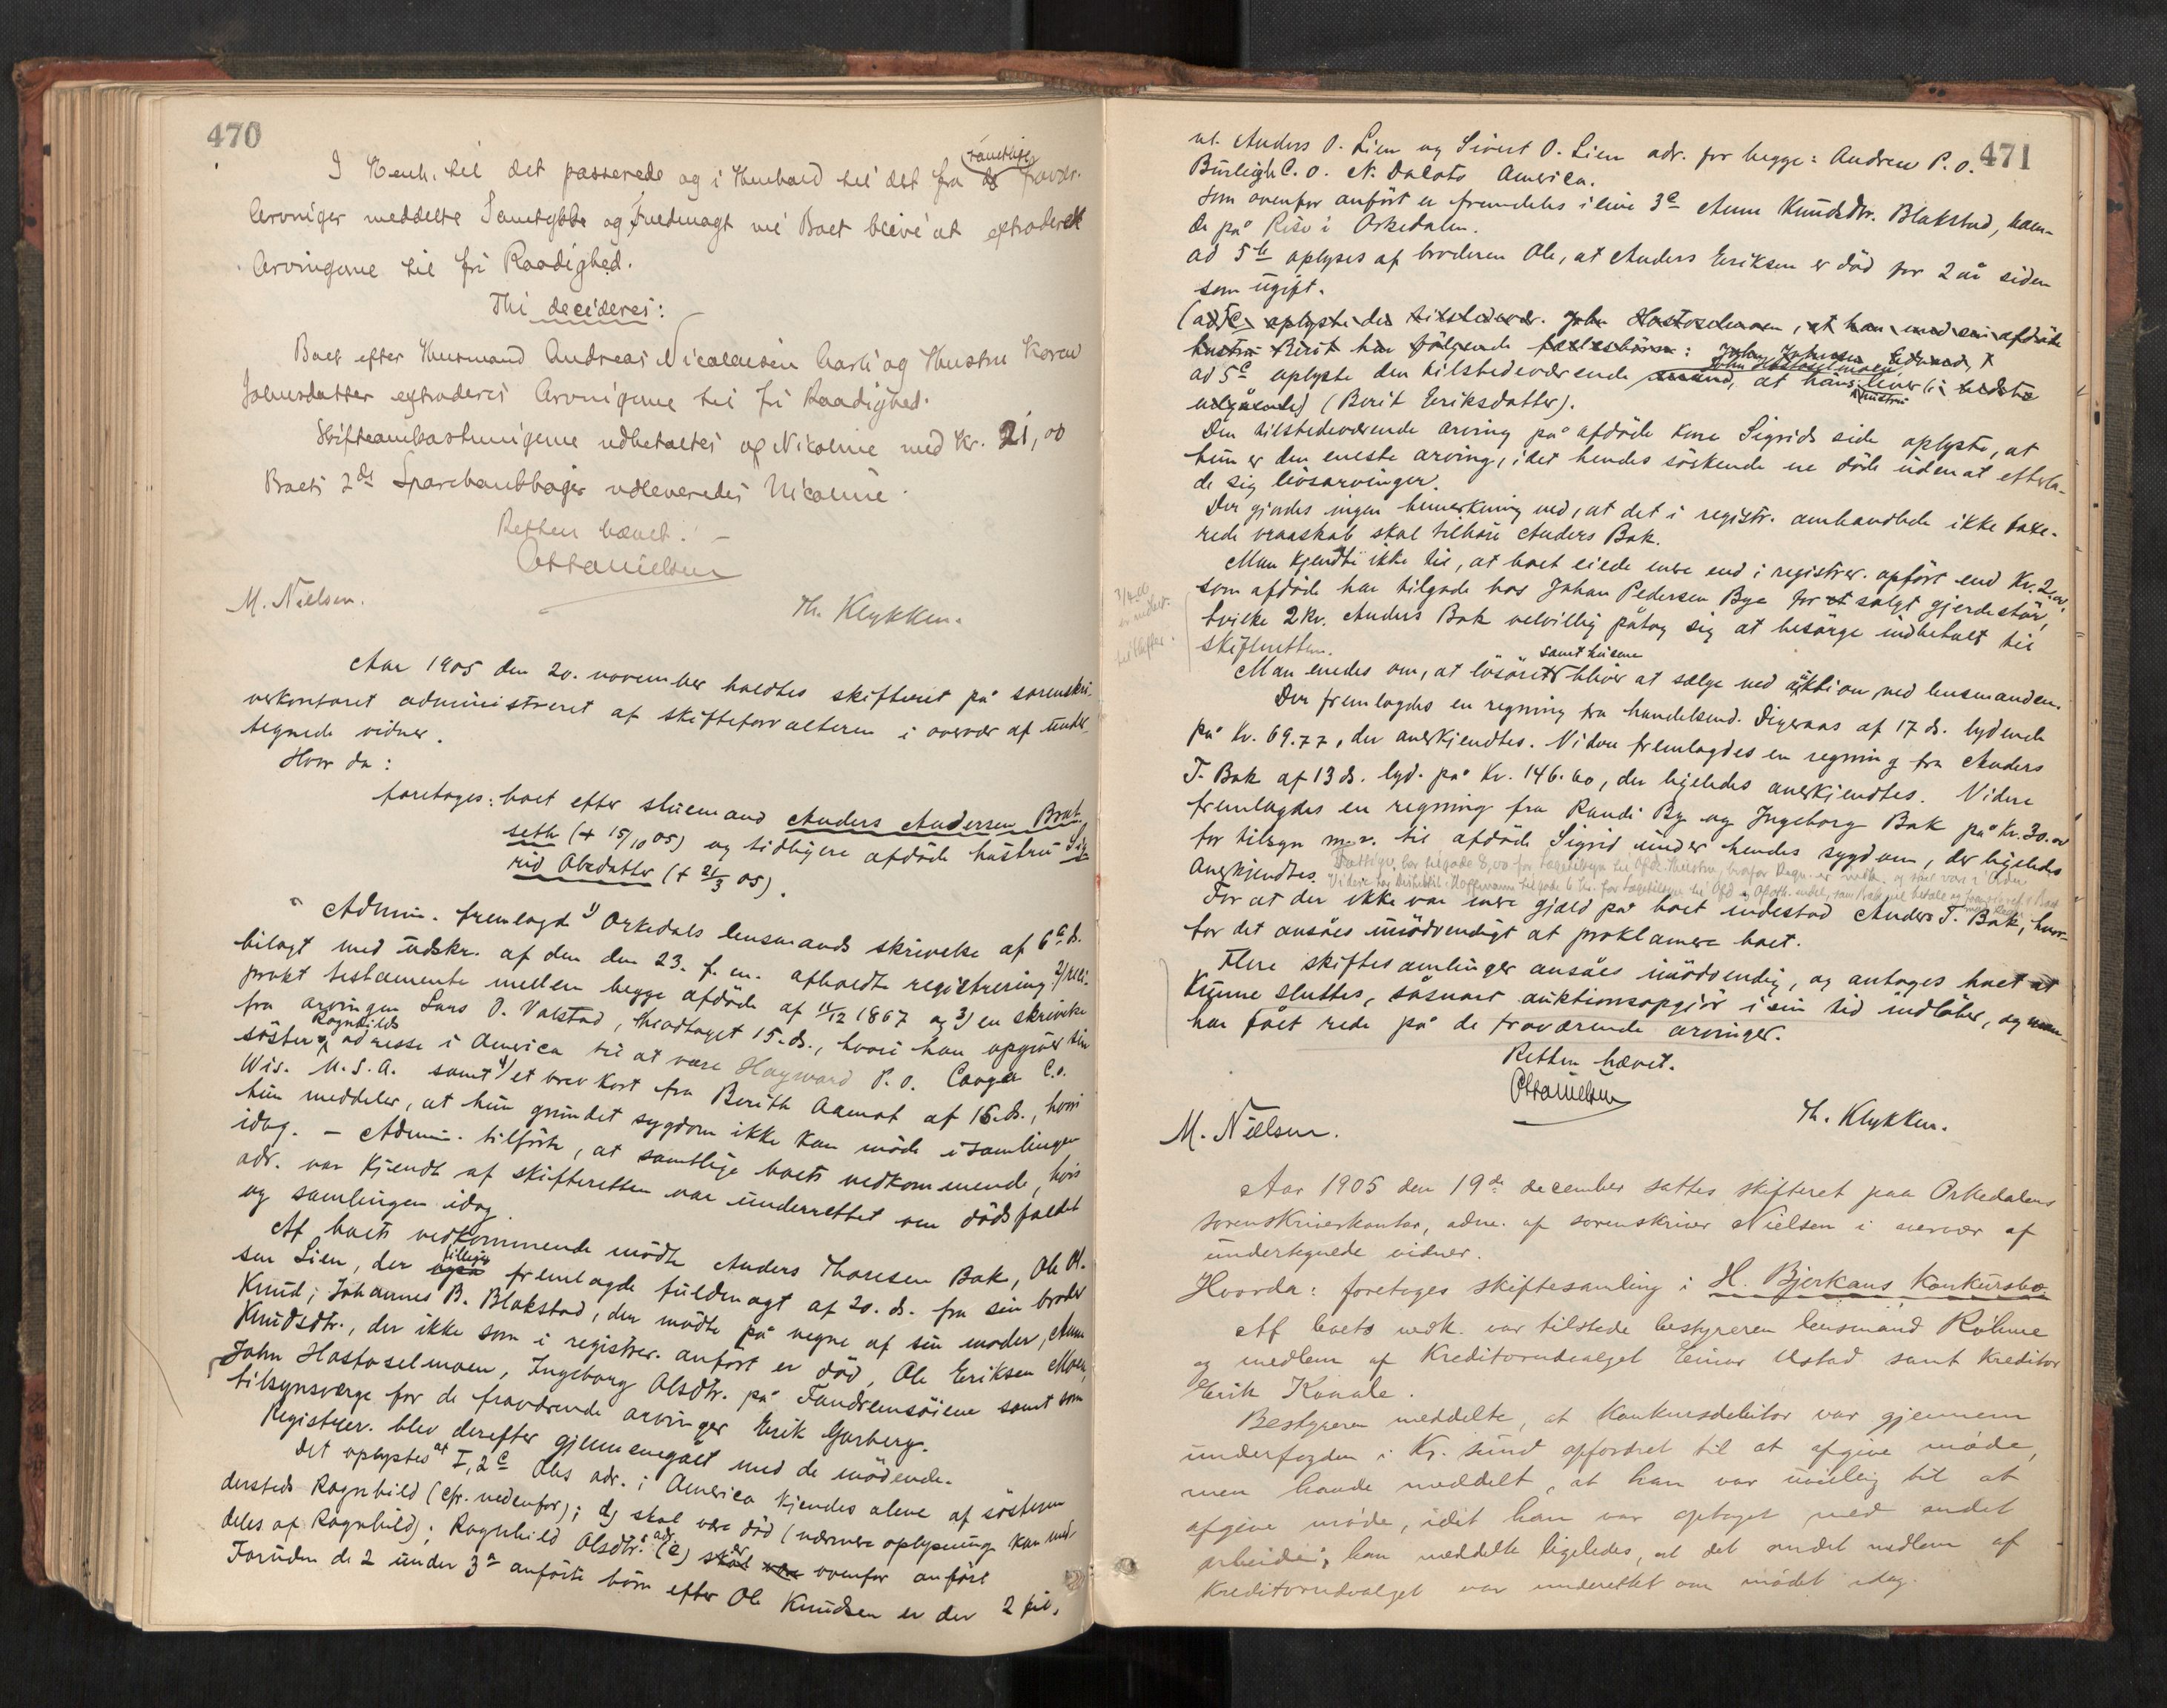 470
I Henh. til det passerede og i Henhold til det fra samtlige fravær.
Arvinger meddelte Samtykke og Fuldmagt vil Boet blive at extradere
Arvingerne til fri Raadighed.
Thi decideres:
Boet efter Husmand Andreas Nicolaisen og Hustru Karen
Johnsdatter extraderes Arvingerne til fri Raadighed.
Skifteomkostningerne udbetaltes af Nicoline med Kr. 21,00
Boets 2de Sparebankbøger udleveredes Nicoline.
Retten hævet. –
M. Nielsen.
Th. Klykken.
Aar 1905 den 20. november holdtes skifteret på sorenskri-
verkontoret administreret af skifteforvalteren i overvær af under-
tegnede vidner.
Hvor da:
foretoges: boet efter stuemand Anders Andersen Brat-
seth (+ 15/10 05) og tidligere afdöde hustru Sig-
rid Olsdatter (+ 21/3 05).
Admin. fremlagde 1) Orkedals lensmands skrivelse af 6te ds.
bilagt med udskr. af den den 23. f. m. afholdte registrering, 2) resi-
prokt testamente mellem begge afdöde af 11/12 1867 og 3) en skrivelse
fra arvingen Lars O. Valstad, modtaget 15. ds., hvori han opgiver sin
söster Ragnhilds adresse i America til at være Hayward P. O. C.o.
Wis. U. S. A. samt 4) et brevkort fra Berith Aamot af 16. ds., hvori
hun meddeler, at hun grundet sygdom ikke kan möde i samlingen
idag. – Admin. tilförte, at samtlige boets vedkommende, hvis
adr. var kjendt af skifteretten var underrettet om dödsfaldet
og samlingen idag.
Af boets vedkommende mödte Anders Thoresen Bak, Ole Ol-
sen Lien, der også tillige fremlagde fuldmagt af 20. ds. fra sin broder
Knud; Johannes B. Blokstad, der mödte på vegne af sin moder, Anne
Knudsdtr., der ikke som i registrer. anfört er död, Ole Eriksen Moen,
John Hastoselmoen, Ingeborg Olsdtr. på Fandremsöiene samt som
tilsynsværge for de fraværende arvinger Erik Garberg.
Registrer. blev derefter gjennemgået med de mödende.
Det oplystes at I, 2 c Oles adr. i America kjendes alene af sösteren
dersteds Ragnhild (cfr. nedenfor); d) skal være död (nærmere oplysninger kan med-
deles af Ragnhild); Ragnhild Olsdtr.s adr. (e) skal være er ovenfor anfört
Foruden de 2 under 3 a anförte börn efter Ole Knudsen er der 2 til,
471
nl. Anders O. Lien og Sivert O. Lien adr. for begge: Andrew P. O.
Burleigh C. o. N. Dacota America.
Som ovenfor anfört er fremdeles i live 3 c Anne Knudsdtr. Blokstad, boen-
de på Riso i Orkedalen.
ad 5 b oplyses af broderen Ole, at Anders Eriksen er död for 2 år siden
som ugift.
(ad 5 c) oplyste den tilstedevær. John Hastoselmoen, at han med sin afdöde
hustru Berit har fölgende fællesbörn: John Johnsen Edvard,
ad 5 c oplyste den tilstedeværende mand, John Hastoselmoen, at hans hustru lever (i bedste
velgående) (Berit Eriksdatter).
Den tilstedeværende arving på afdöde kone Sigrids side oplyste, at
hun er den eneste arving, idet hendes söskende er döde uden at efterla-
de sig livsarvinger.
Der gjordes ingen bemerkning ved, at det i registr. omhandlede ikke taxe-
rede vraaskab skal tilhöre Anders Bak.
Man kjendte ikke til, at boet eiede mere end i registrer. opfört end Kr. 2,00,
som afdöde har tilgode hos Johan Pedersen Bye for et solgt gjerdestör,
hvilke 2 kr. Anders Bak velvillig påtog sig at besörge indbetalt til
skifteretten.
Man enedes om, at lösöret samt husene bliver at sælge ved auktion ved lensmanden.
Der fremlagdes en regning fra handelsmd. Digeraas af 17 ds. lydende
på Kr. 69.77, der anerkjendtes. Videre fremlagdes en regning fra Anders
T. Bak af 13 ds. lyd. på Kr. 146.60, der ligeledes anerkjendtes. Videre
fremlagdes en regning fra Randi By og Ingeborg Bak på Kr. 30.00
for tilsyn m. v. til afdöde Sigrid under hendes sygdom, der ligeledes
anerkjendtes.
For at der ikke var mere gjæld på boet indestod Anders T. Bak, hvor-
for det ansåes unödvendigt at proklamere boet.
Flere skiftesamlinger ansåes unödvendig, og antages boet at
kunne sluttes, såsnart auktionsopgjör i sin tid indlöber, og man
har fået rede på de fraværende arvinger.
Retten hævet.
M. Nielsen.
Th. Klykken.
Aar 1905 den 19de december sattes skifteret paa Orkedalens
sorenskriverkontor, adm. af sorenskriver Nielsen i overvær af
undertegnede vidner.
Hvorda: foretoges skiftesamling i H. Bjerkans Konkursbo.
Af boets vedk. var tilstede bestyreren lensmand Röhme
og medlem af Kreditorudvalget Einar Ustad samt kreditor
Erik Kvaale.
Bestyreren meddelte, at konkursdebitor var gjennem
underfogden i Kr. sund opfordret til at afgive möde,
men havde meddelt, at han var uvillig til at
afgive möde, idet han var optaget med andet
arbeide; han meddelte ligeledes, at det andet medlem af
kreditorudvalget var underettet om mödet idag.